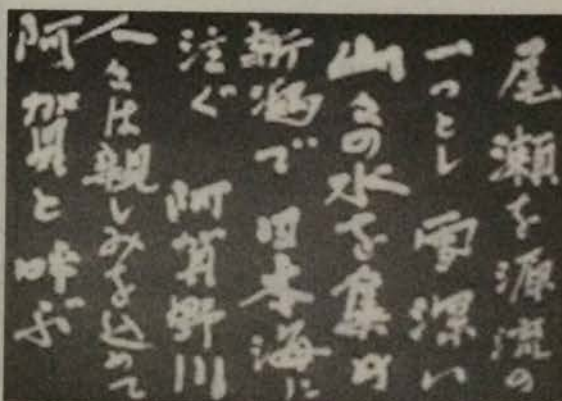 尾瀬を源流の
一つとし 雪深い
山々の水を集め
新潟で 日本海に
注ぐ 阿賀野川
人々は親しみを込めて
阿賀と呼ぶ